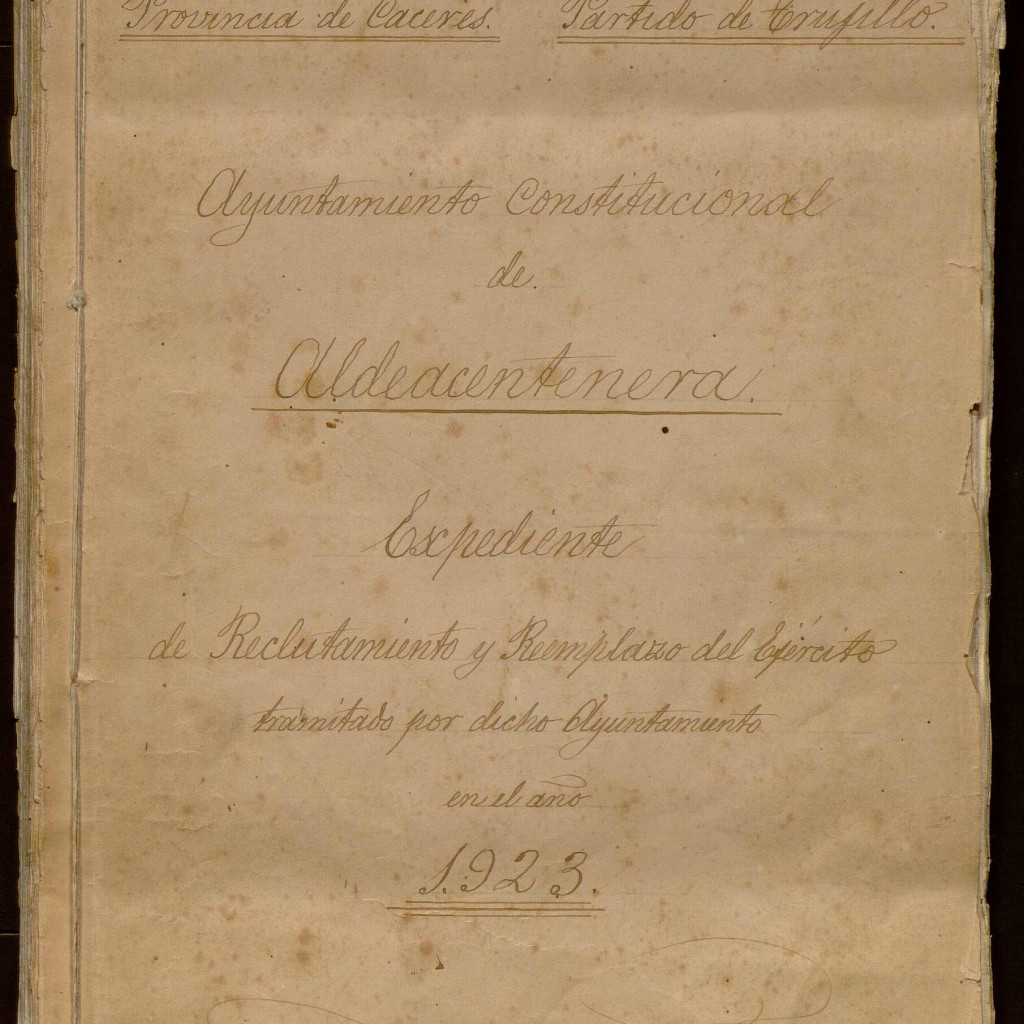 Provincia de Caceres. Partido de Trujillo.
Ayuntamiento Constitucional
de.
Aldeacentenera.
Expediente
de Reclutamiento y Reemplazo del Ejército
tramitado por dicho Ayuntamiento
en el año
1.923.